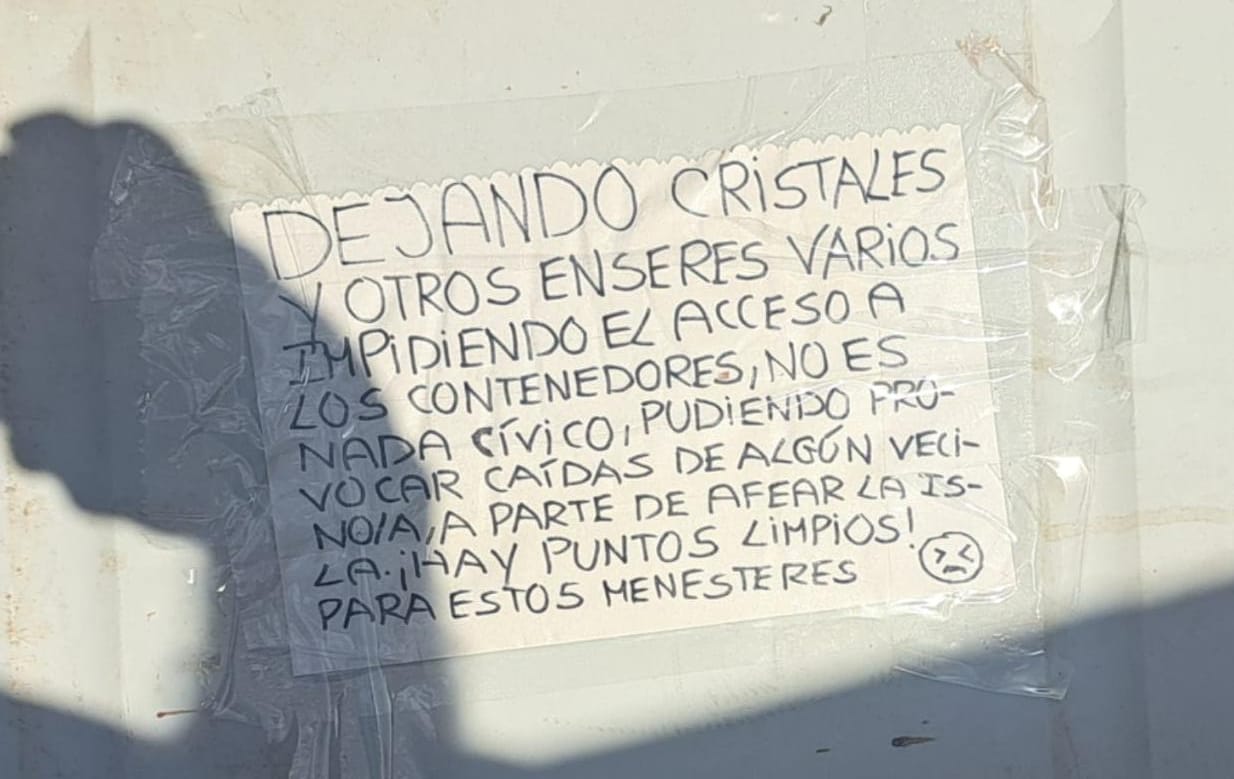 DEJANDO CRISTALES
Y OTROS ENSERES VARIOS
IMPIDIENDO EL ACCESO A
LOS CONTENEDORES, NO ES
NADA CÍVICO, PUDIENDO PRO-
VOCAR CAÍDAS DE ALGÚN VECI-
NO/A, A PARTE DE AFEAR LA IS-
LA. ¡HAY PUNTOS LIMPIOS!
PARA ESTOS MENESTERES